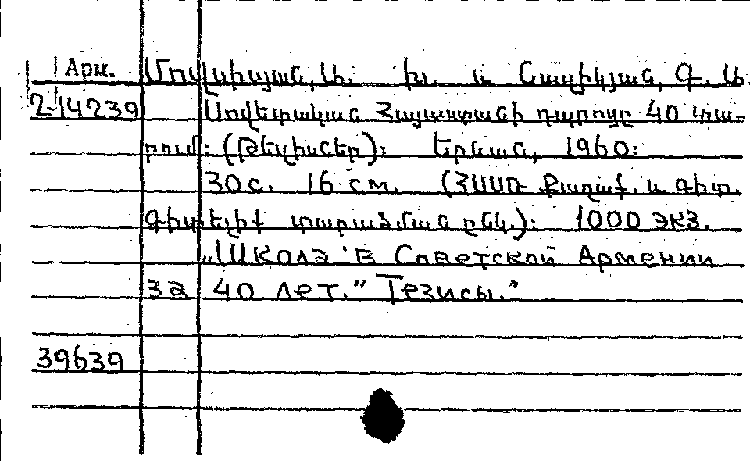 Арм. Մովսիսյան, Ա. Խ. և Նազիկյան, Գ. Ա.
2-14239 Սովետական Հայաստանի դպրոցը 40 տա-
րում: (Թեզիսներ): Երևան, 1960:
30 с. 16 см. (ՀՍՍՌ Քաղաք. և գիտ.
գիտելիք տարածման ընկ.): 1000 экз.
„Школа в Советской Армении
за 40 лет.” Тезисы.”
39639